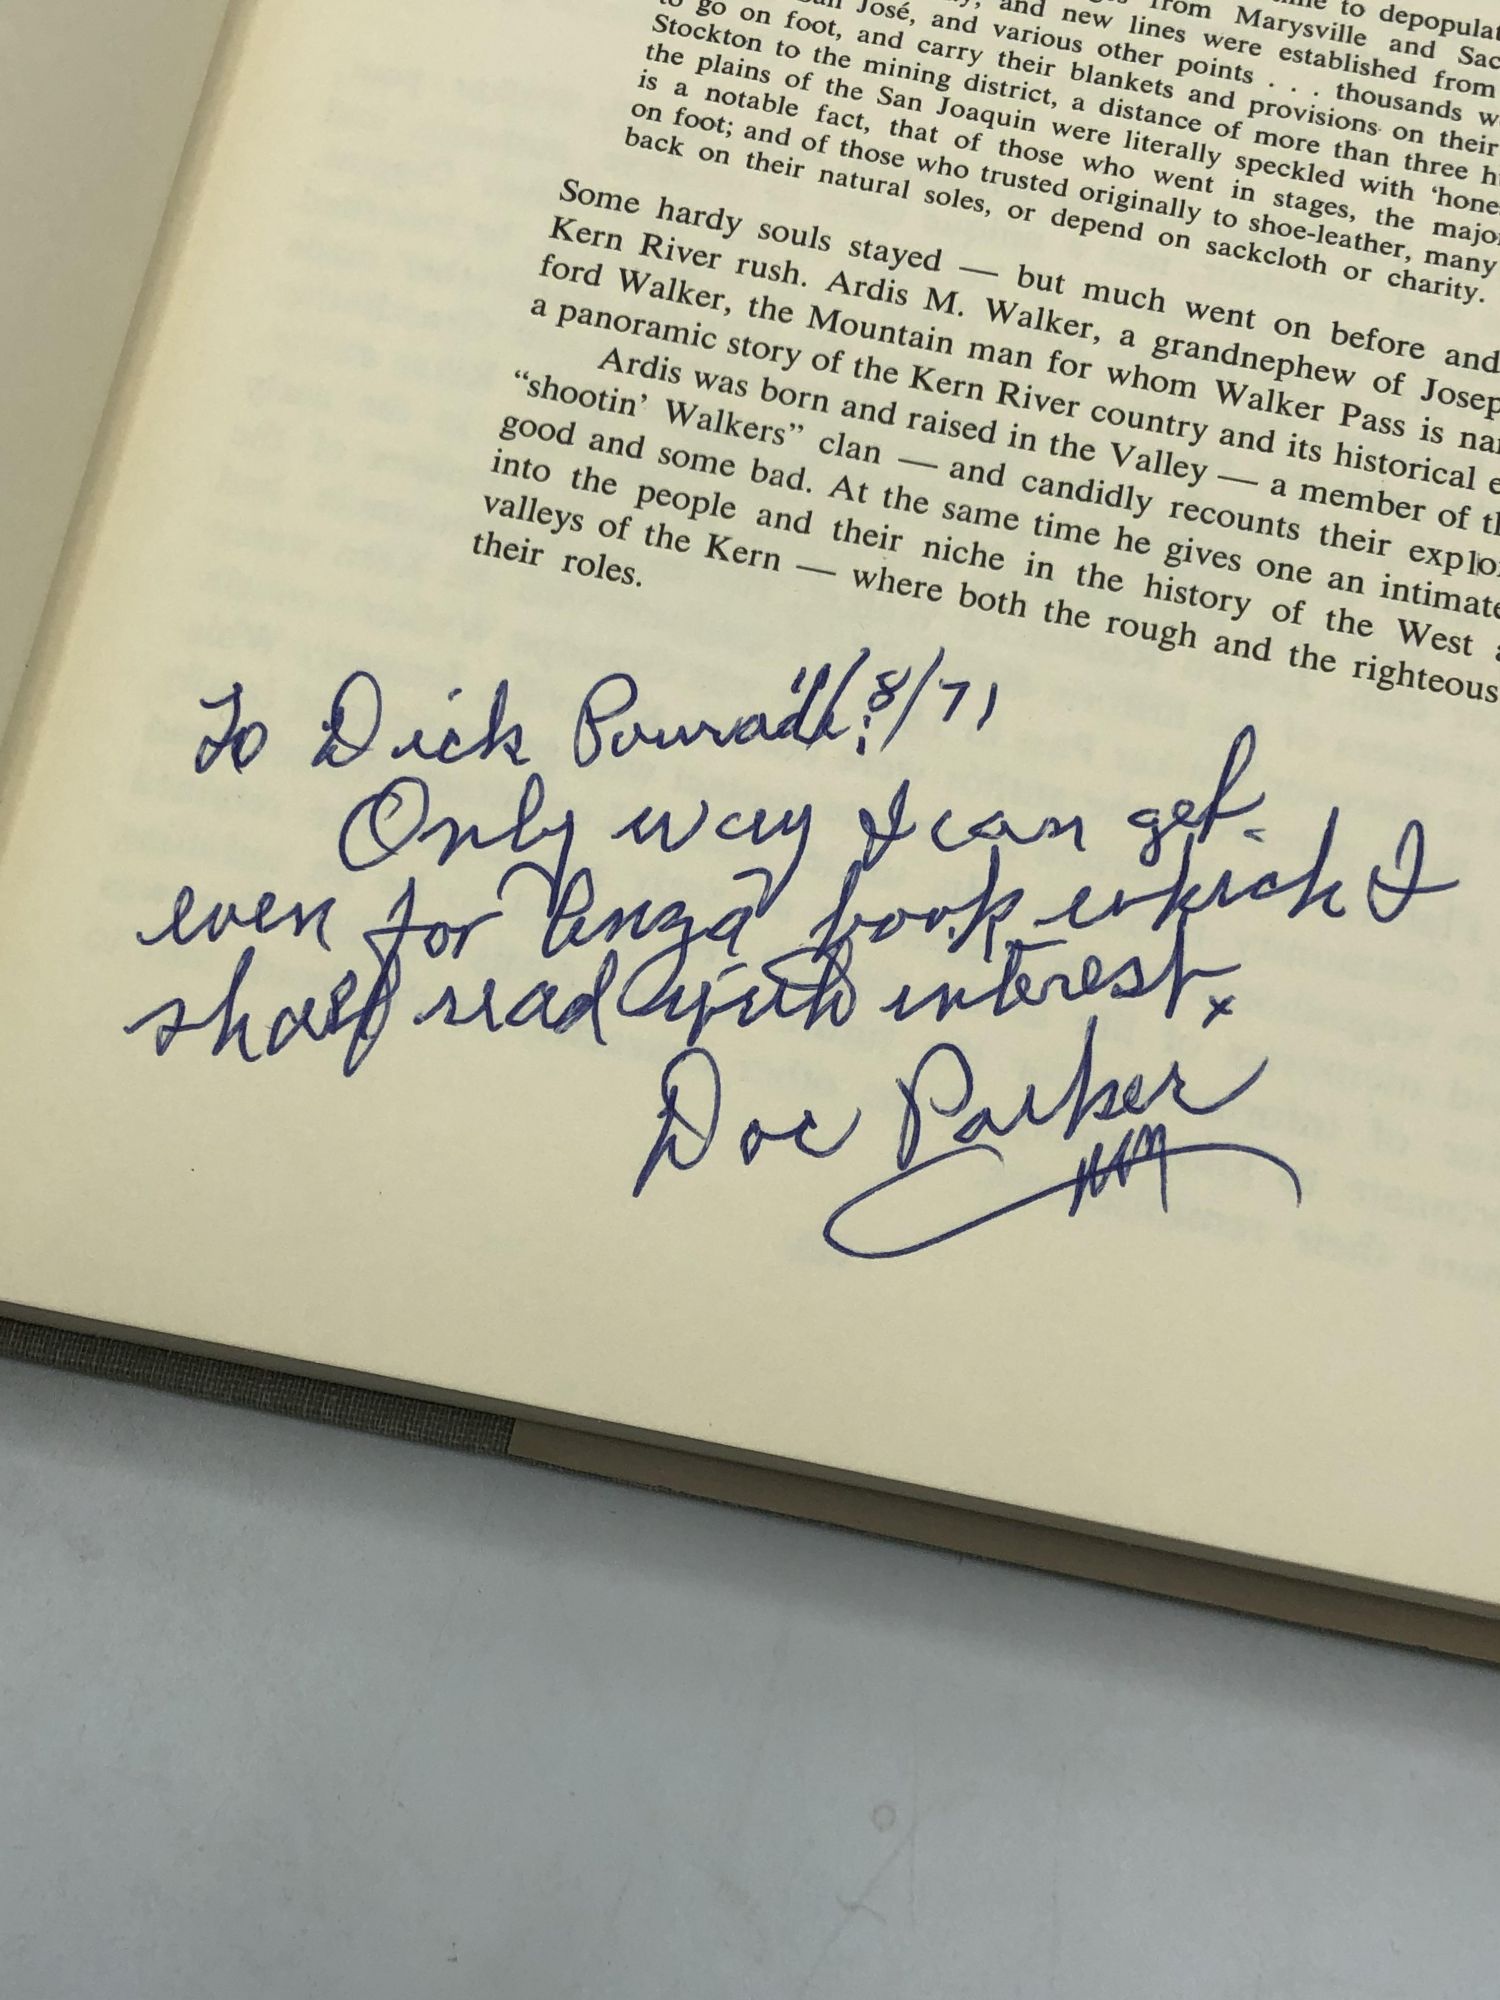 time to depopulat
from Marysville and Sac
José, and various other points . . . thousands w
and new lines were established from
to go on foot, and carry their blankets and provisions on their
Stockton to the mining district, a distance of more than three h
the plains of the San Joaquin were literally speckled with ‘hone
is a notable fact, that of those who went in stages, the major
on foot; and of those who trusted originally to shoe-leather, many
back on their natural soles, or depend on sackcloth or charity.
Some hardy souls stayed — but much went on before and
Kern River rush. Ardis M. Walker, a grandnephew of Josep
ford Walker, the Mountain man for whom Walker Pass is na
a panoramic story of the Kern River country and its historical e
Ardis was born and raised in the Valley — a member of t
“shootin’ Walkers” clan — and candidly recounts their explo
good and some bad. At the same time he gives one an intimate
into the people and their niche in the history of the West a
valleys of the Kern — where both the rough and the righteous
their roles.
To Dick Pourade: 11/8/71
Only way I can get
even for "Anza" book which I
shall read with interest.
Doc Parker